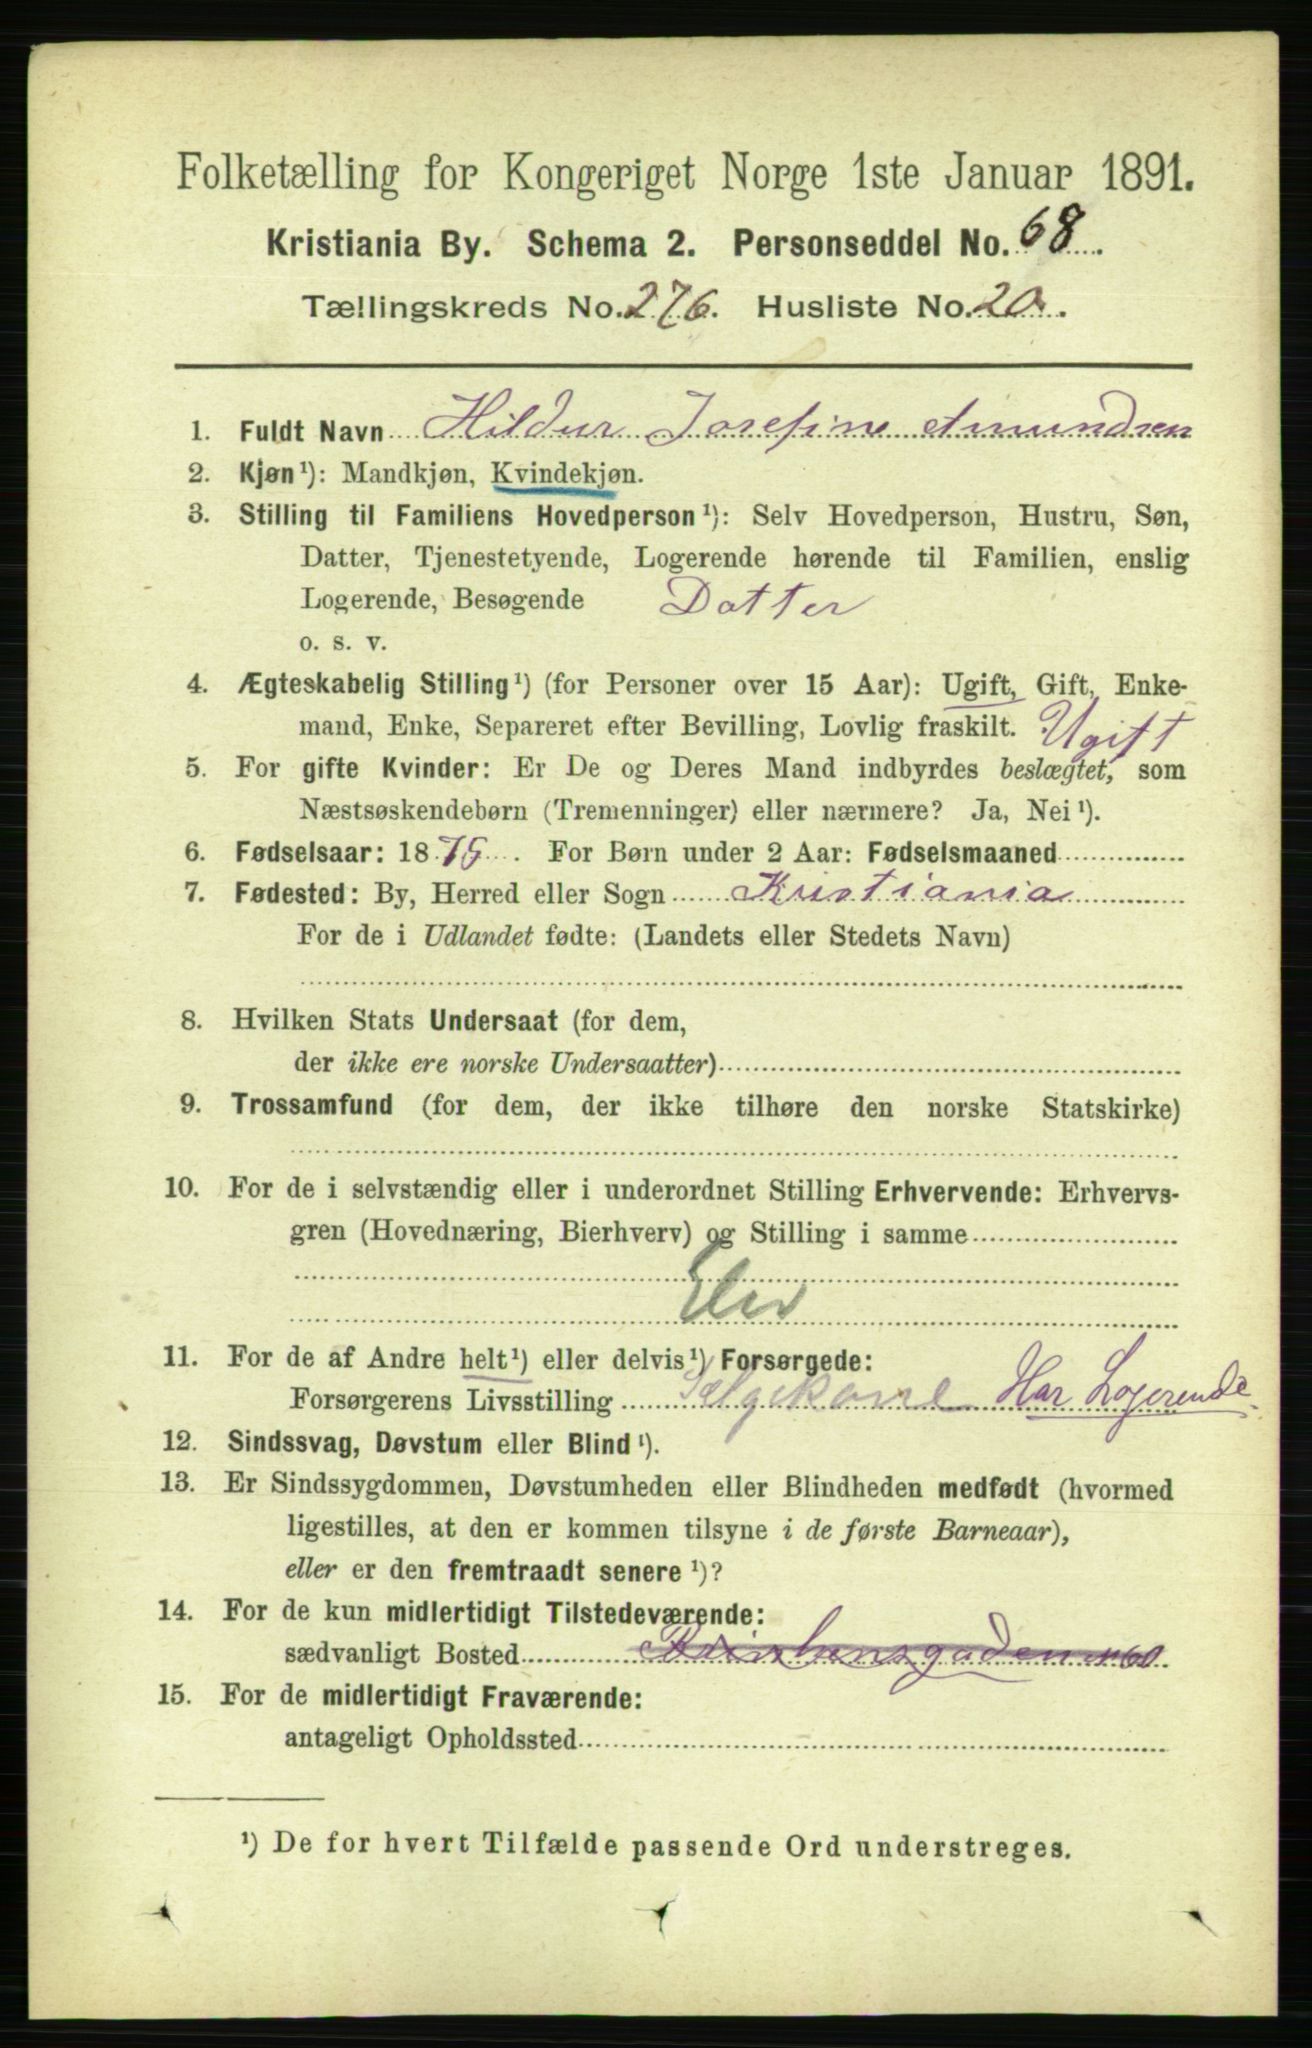 Folketælling for Kongeriget Norge 1ste Januar 1891.
Kristiania By. Schema 2. Personseddel No. 68.
Tællingskreds No. 276. Husliste No. 20.
1. Fuldt Navn Hildur Josefine Amundsen
2. Kjøn¹): Mandkjøn, Kvindekjøn.
3. Stilling til Familiens Hovedperson¹): Selv Hovedperson, Hustru, Søn,
Datter, Tjenestetyende, Logerende hørende til Familien, enslig
Logerende, Besøgende Datter
o. s. v.
4. Ægteskabelig Stilling¹) (for Personer over 15 Aar): Ugift, Gift, Enke-
mand, Enke, Separeret efter Bevilling, Lovlig fraskilt. Ugift
5. For gifte Kvinder: Er De og Deres Mand indbyrdes beslægtet, som
Næstsøskendebørn (Tremenninger) eller nærmere? Ja, Nei¹).
6. Fødselsaar: 1875. For Børn under 2 Aar: Fødselsmaaned
7. Fødested: By, Herred eller Sogn Kristiania
For de i Udlandet fødte: (Landets eller Stedets Navn)
8. Hvilken Stats Undersaat (for dem,
der ikke ere norske Undersaatter)
9. Trossamfund (for dem, der ikke tilhøre den norske Statskirke)
10. For de i selvstændig eller i underordnet Stilling Erhvervende: Erhvervs-
gren (Hovednæring, Bierhverv) og Stilling i samme
Elev
11. For de af Andre helt¹) eller delvis¹) Forsørgede:
Forsørgerens Livsstilling Sælgekone Har Logerende
12. Sindssvag, Døvstum eller Blind¹).
13. Er Sindssygdommen, Døvstumheden eller Blindheden medfødt (hvormed
ligestilles, at den er kommen tilsyne i de første Barneaar),
eller er den fremtraadt senere¹)?
14. For de kun midlertidigt Tilstedeværende:
sædvanligt Bosted 60
15. For de midlertidigt Fraværende:
antageligt Opholdssted
¹) De for hvert Tilfælde passende Ord understreges.